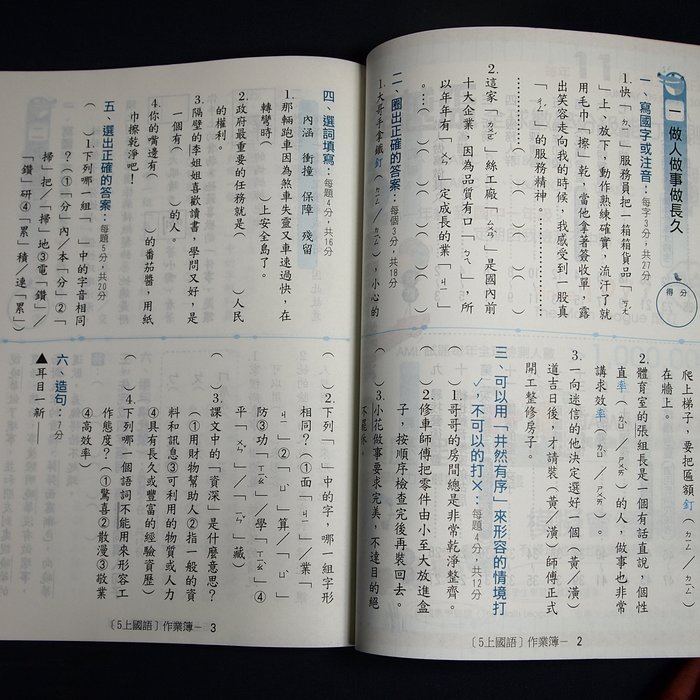 一 做人做事做長久
得分
一、寫國字或注音：每字3分，共27分
1.快「ㄉㄧˋ」服務員把一箱箱貨品
」上 放下，動作熟練確實，流汗了就
用毛巾「擦」乾，當他拿著簽收單，露
出笑容走向我的時候，我感受到一股真
」的服務精神。…………
2.這家「ㄙㄠ」絲工廠「」是國內前
十大企業，因為品質有口「ㄅㄟ」，所
以年年有（ ）定成長的業「ㄐㄧ」
。……（ ）（ ）（ ）（ ）
二、圈出正確的答案：每個3分，共18分
1.大哥手拿鐵釘（ㄉㄧㄥ／ㄉㄧㄥˋ），小心的
爬上梯子，要把匾額釘（ㄉㄧㄥ／ㄉㄧㄥˋ）
在牆上。
2.體育室的張組長是一個有話直說，個性
直率（ㄌㄩˋ／ㄕㄨㄞˋ）的人，做事也非常
講求效率（ㄌㄩˋ／ㄕㄨㄞˋ）。
3.一向迷信的他決定選好一個（黃／潢）
道吉日後，才請裝（黃／潢）師傅正式
開工整修房子。
三、可以用「井然有序」來形容的情境打
✓，不可以的打×：每題4分，共12分
（ ）1.哥哥的房間總是非常乾淨整齊。
（ ）2.修車師傅把零件由小至大放進盒
子，按順序檢查完後再裝回去。
（ ）3.小花做事要求完美，不達目的絕
不罷休。
〔5上國語〕作業簿－ 2
四、選詞填寫：每題4分，共16分
內涵 衝撞 保障 殘留
1.那輛跑車因為煞車失靈又車速過快，在
轉彎時（ ）上安全島了。
2.政府最重要的任務就是（ ）人民
的權利。
3.隔壁的李姐姐喜歡讀書，學問又好，是
一個有（ ）的人。
4.你的嘴邊有（ ）的番茄醬，用紙
巾擦乾淨吧！
五、選出正確的答案：每題5分，共20分
（ ）1.下列哪一組「 」中的字音相同
？（①「分」內／本「分」②「
掃」把／「掃」地③電「鑽」／
「鑽」研④「累」積／連「累」
（ ）2.下列「 」中的字，哪一組字形
相同？（①面「ㄐㄧ」／業「
ㄐㄧ」②「ㄩˋ」算／「ㄩˋ」
防③功「ㄒㄧㄠˋ」／學「ㄒㄧㄠˋ」④
平「ㄈㄣ」／「ㄈㄣ」藏）
（ ）3.課文中的「資深」是什麼意思？
（①用財物幫助人②指一般的資
料和訊息③可利用的物質或人力
④具有長久或豐富的經驗資歷）
（ ）4.下列哪一個語詞不能用來形容工
作態度？（①驚喜②散漫③敬業
④高效率）
六、造句：7分
▲耳目一新——
〔5上國語〕作業簿－ 3